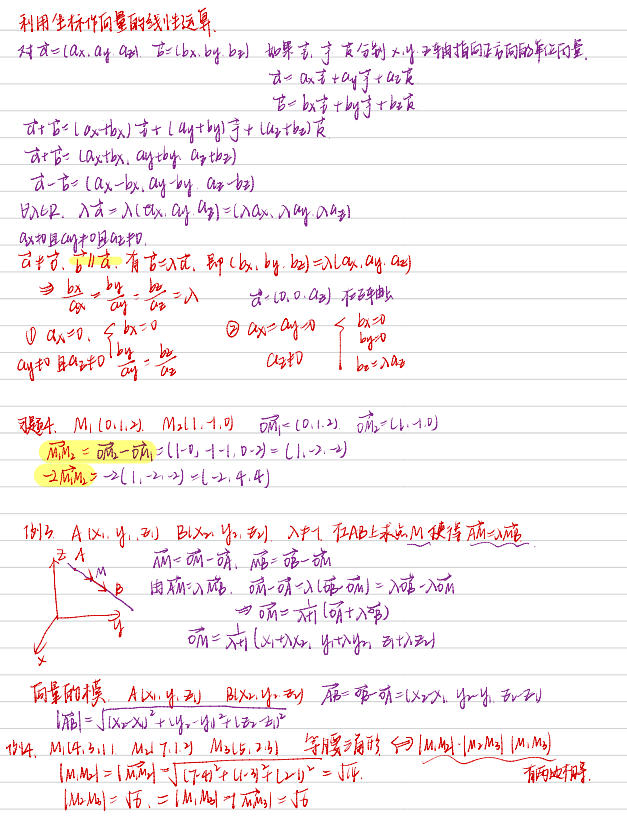 利用坐标作向量的线性运算.
对 a⃗=(ax, ay, az). b⃗=(bx, by, bz) 如果 i⃗, j⃗, k⃗ 分别 x, y, z轴指向正方向的单位向量.
a⃗=ax i⃗+ay j⃗+az k⃗
b⃗=bx i⃗+by j⃗+bz k⃗
a⃗+b⃗=(ax+bx) i⃗+(ay+by) j⃗+(az+bz) k⃗
a⃗+b⃗=(ax+bx, ay+by, az+bz)
a⃗-b⃗=(ax-bx, ay-by, az-bz)
∀λ∈R. λa⃗=λ(ax, ay, az)=(λax, λay, λaz)
ax≠0且ay≠0且az≠0.
a⃗≠0⃗, b⃗∥a⃗, 有 b⃗=λa⃗, 即 (bx, by, bz)=λ(ax, ay, az)
⇒ bx/ax=by/ay=bz/az=λ a⃗=(0, 0, az) 在z轴上
① ax=0, { bx=0 ② ax=ay=0 { bx=0
by=0
ay≠0 且 az≠0 by/ay=bz/az az≠0 bz=λaz
习题4. M1(0,1,2). M2(1,-1,0) OM1=(0,1,2). OM2=(1,-1,0)
M1M2=OM2-OM1=(1-0, -1-1, 0-2)=(1,-2,-2)
-2M1M2=-2(1,-2,-2)=(-2,4,4)
例3 A(x1, y1, z1) B(x2, y2, z2) λ≠-1 在AB上求点M使得 AM=λMB
z A M B y x
AM=OM-OA, MB=OB-OM
由AM=λMB. OM-OA=λ(OB-OM)=λOB-λOM
⇒ OM=1/(λ+1) (OA+λOB)
OM=1/(λ+1) (x1+λx2, y1+λy2, z1+λz2)
向量的模. A(x1, y1, z1) B(x2, y2, z2) AB=OB-OA=(x2-x1, y2-y1, z2-z1)
|AB|=√((x2-x1)²+(y2-y1)²+(z2-z1)²)
例4. M1(4,3,1) M2(7,1,2) M3(5,2,3) 等腰三角形 ⇔ |M1M2|·|M2M3| |M1M3|
|M1M2|=|M1M2|=√((7-4)²+(1-3)²+(2-1)²)=√14. 有两边相等.
|M2M3|=√6. =|M1M3|=√6